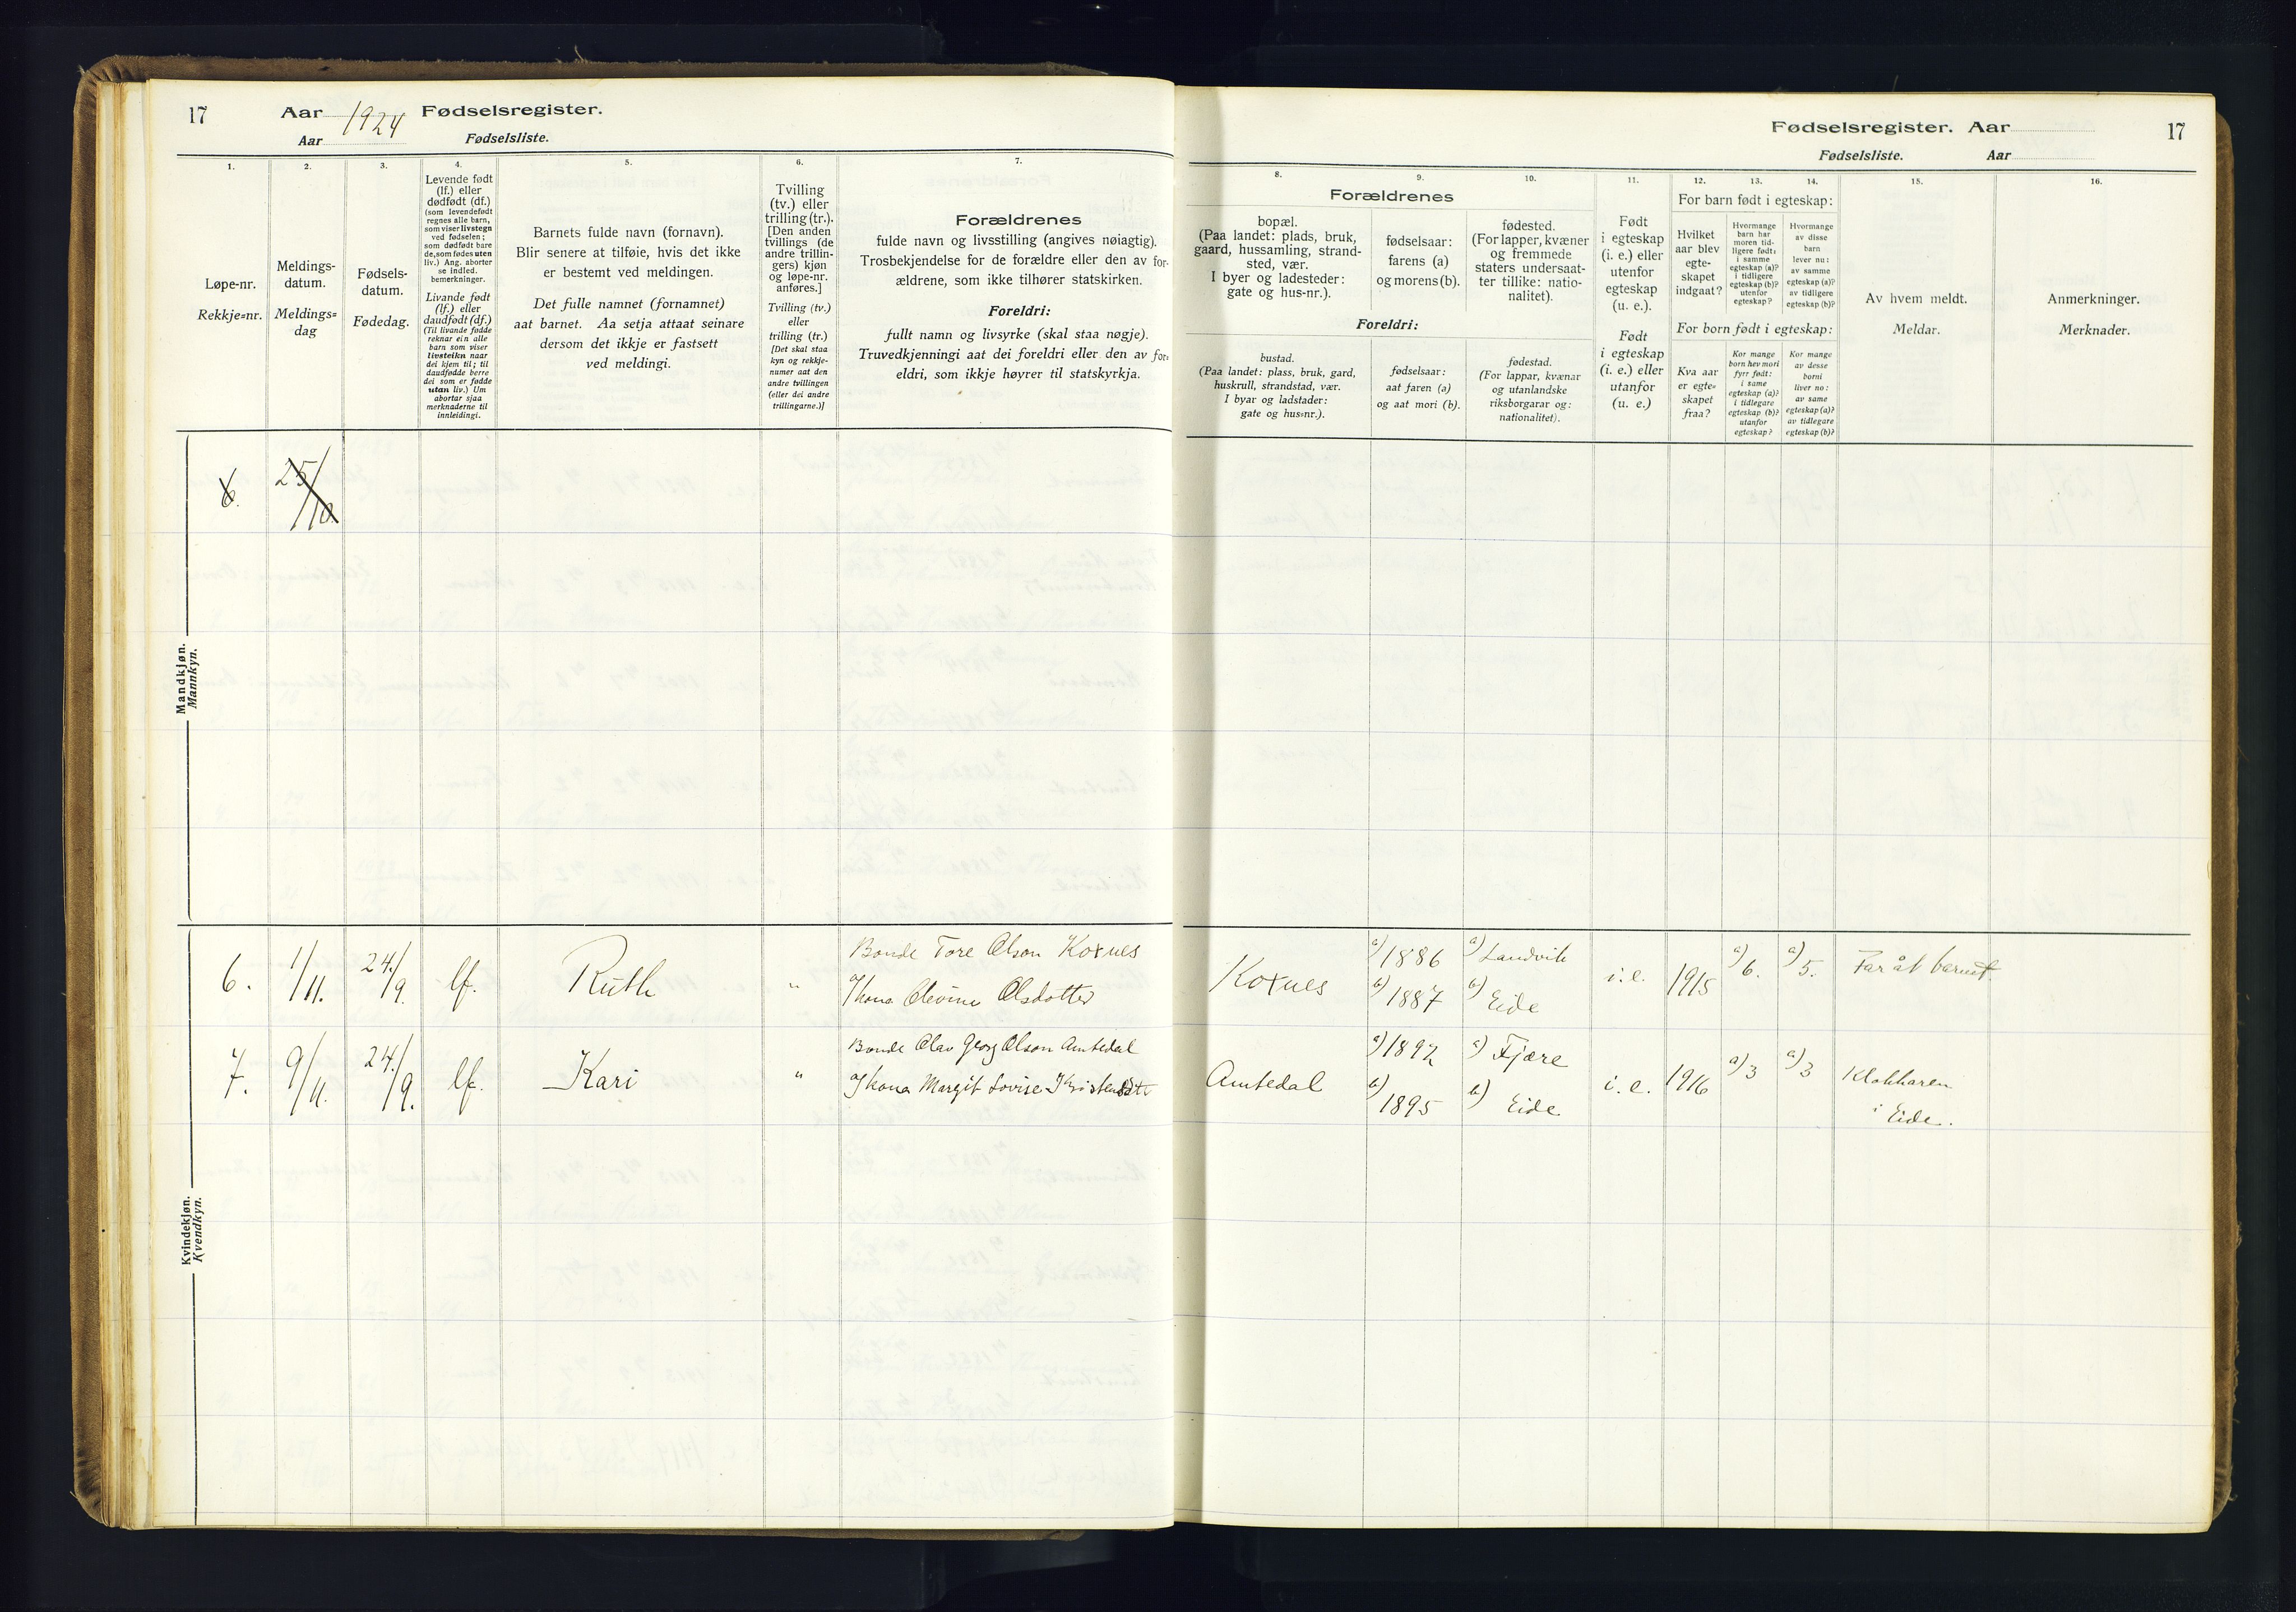 17
Aar 1924 Fødselsregister.
Aar Fødselsliste.
1.
Løpe-nr.
Rekkje=nr.
2.
Meldings-
datum.
Meldings=
dag
3.
Fødsels-
datum.
Fødedag.
4.
Levende født
(lf.) eller
dødfødt (df.)
(som levendefødt
regnes alle barn,
som viser livstegn
ved fødselen;
som dødfødt bare
de, som fødes uten
liv.) Ang. aborter
se indled.
bemerkninger.
Livande født
(lf.) eller
daudfødt (df.)
(Til livande fødde
reknar ein alle
barn som viser
livsteikn naar
dei kjem til; til
daudfødde berre
dei som er fødde
utan liv.) Um
abortar sjaa
merknaderne til
innleidingi.
5.
Barnets fulde navn (fornavn).
Blir senere at tilføie, hvis det ikke
er bestemt ved meldingen.
Det fulle namnet (fornamnet)
aat barnet. Aa setja attaat seinare
dersom det ikkje er fastsett
ved meldingi.
6.
Tvilling
(tv.) eller
trilling (tr.).
[Den anden
tvillings (de
andre trillin-
gers) kjøn
og løpe-nr.
anføres.]
Tvilling (tv.)
eller
trilling (tr.)
[Det skal staa
kyn og rekkje-
numer aat den
andre tvillingen
(eller dei andre
trillingarne.)]
7.
Forældrenes
fulde navn og livsstilling (angives nøiagtig).
Trosbekjendelse for de forældre eller den av for-
ældrene, som ikke tilhører statskirken.
Foreldri:
fullt namn og livsyrke (skal staa nøgje).
Truvedkjenningi aat dei foreldri eller den av for=
eldri, som ikkje høyrer til statskyrkja.
Fødselsregister. Aar
17
Fødselsliste. Aar
8.
Forældrenes
bopæl.
(Paa landet: plads, bruk,
gaard, hussamling, strand-
sted, vær.
I byer og ladesteder:
gate og hus-nr.).
Foreldri:
bustad.
(Paa landet: plass, bruk, gard,
huskrull, strandstad, vær.
I byar og ladstader:
gate og hus=nr.).
9.
fødselsaar:
farens (a)
og morens (b).
fødselsaar:
aat faren (a)
og aat mori (b).
10.
fødested.
(For lapper, kvæner
og fremmede
staters undersaat-
ter tillike: natio-
nalitet).
fødestad.
(For lappar, kvænar
og utanlandske
riksborgarar og:
nationalitet).
11.
Født
i egteskap
(i. e.) eller
utenfor
egteskap
(u. e.).
Født
i egteskap
(i. e.) eller
utanfor
(u. e.)
12.
13.
14.
For barn født i egteskap:
Hvilket
aar blev
egte-
skapet
indgaat?
Hvormange
barn har
moren tid-
ligere født:
i samme
egteskap (a)?
i tidligere
egteskap (b)?
utenfor
egteskap?
Hvormange
av disse
barn
lever nu:
av samme
egteskap (a)?
av tidligere
egteskap (b)?
For born født i egteskap:
Kva aar
er egte=
skapet
fraa?
Kor mange
born hev mori
fyrr født:
i same
egteskap (a)?
i tidlegare
egteskap (b)?
utanfor
egteskap?
Kor mange
av desse
borni
liver no:
av same
egteskap (a)?
av tidlegare
egteskap (b)?
15.
Av hvem meldt.
Meldar.
16.
Anmerkninger.
Merknader.
Mandkjøn.
Mannkyn.
6. 25/10.
Kvindekjøn.
Kvendkyn.
6. 1/11. 24./9. lf. Ruth " Bonde Tore Olson Koxnes
Kona Olevine Olsdotter
Koxnes a) 1886 a) Landvik i. e. 1915 a) 6. a) 5. Far åt barnet.
b) 1887 b) Eide
7. 9/11. 24./9. lf. Kari " Bonde Olav Georg Olson Amtedal
Kona Margit Lovise Kristensdtr
Amtedal a) 1892 a) Fjære i. e. 1916 a) 3 a) 3 Klokkaren
b) 1895 b) Eide i Eide.